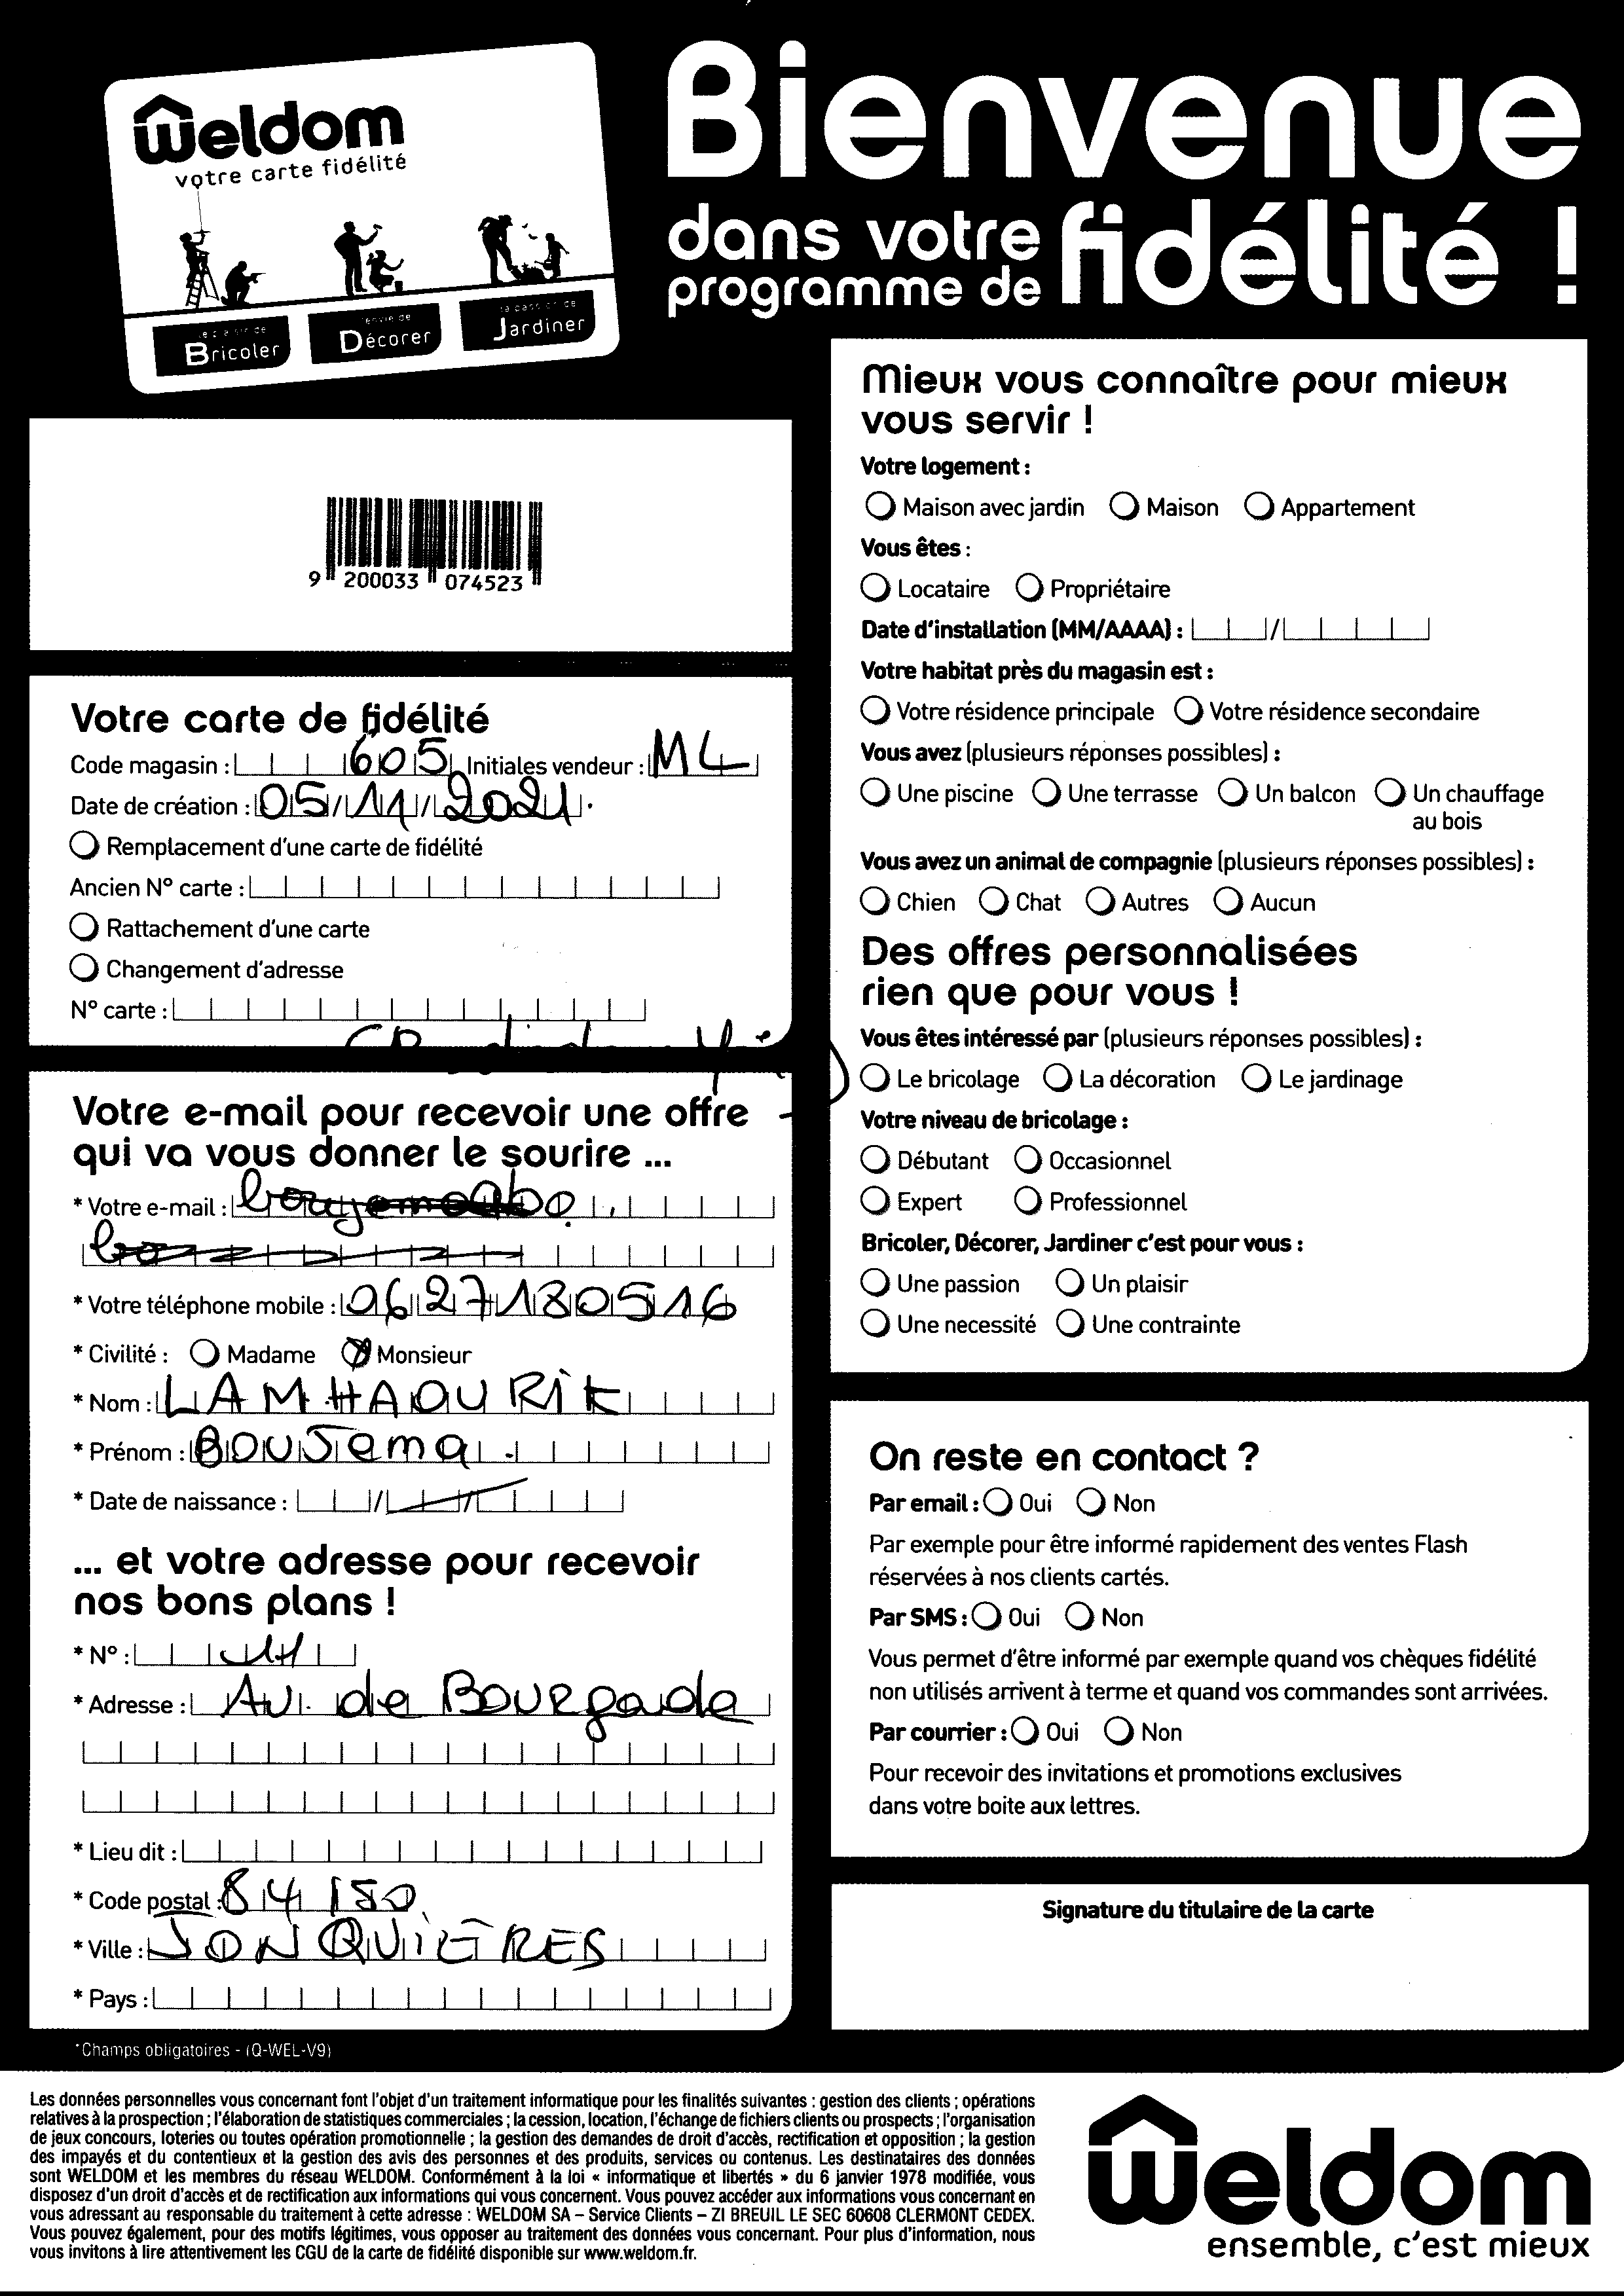 Weldom
votre carte fidélité
le plaisir de
Bricoler
l'envie de
Décorer
la passion de
Jardiner
Bienvenue
dans votre
programme de fidélité !
9 200033 074523
Votre carte de fidélité
Code magasin : 605 Initiales vendeur : ML
Date de création : 05/11/2021.
Remplacement d'une carte de fidélité
Ancien N° carte :
Rattachement d'une carte
Changement d'adresse
N° carte :
Votre e-mail pour recevoir une offre
qui va vous donner le sourire ...
* Votre e-mail :
* Votre téléphone mobile : 0627180516
* Civilité : Madame Monsieur
* Nom : LAMHAOURIK
* Prénom : BOUJema
* Date de naissance : / /
... et votre adresse pour recevoir
nos bons plans !
* N° :
* Adresse : AV. de Bourgade
* Lieu dit :
* Code postal : 84150
* Ville : JONQUIÈRES
* Pays :
*Champs obligatoires - (Q-WEL-V9)
Mieux vous connaître pour mieux
vous servir !
Votre logement :
Maison avec jardin Maison Appartement
Vous êtes :
Locataire Propriétaire
Date d'installation (MM/AAAA) : /
Votre habitat près du magasin est :
Votre résidence principale Votre résidence secondaire
Vous avez (plusieurs réponses possibles) :
Une piscine Une terrasse Un balcon Un chauffage
au bois
Vous avez un animal de compagnie (plusieurs réponses possibles) :
Chien Chat Autres Aucun
Des offres personnalisées
rien que pour vous !
Vous êtes intéressé par (plusieurs réponses possibles) :
Le bricolage La décoration Le jardinage
Votre niveau de bricolage :
Débutant Occasionnel
Expert Professionnel
Bricoler, Décorer, Jardiner c'est pour vous :
Une passion Un plaisir
Une necessité Une contrainte
On reste en contact ?
Par email : Oui Non
Par exemple pour être informé rapidement des ventes Flash
réservées à nos clients cartés.
Par SMS : Oui Non
Vous permet d'être informé par exemple quand vos chèques fidélité
non utilisés arrivent à terme et quand vos commandes sont arrivées.
Par courrier : Oui Non
Pour recevoir des invitations et promotions exclusives
dans votre boite aux lettres.
Signature du titulaire de la carte
Les données personnelles vous concernant font l'objet d'un traitement informatique pour les finalités suivantes : gestion des clients ; opérations
relatives à la prospection ; l'élaboration de statistiques commerciales ; la cession, location, l'échange de fichiers clients ou prospects ; l'organisation
de jeux concours, loteries ou toutes opération promotionnelle ; la gestion des demandes de droit d'accès, rectification et opposition ; la gestion
des impayés et du contentieux et la gestion des avis des personnes et des produits, services ou contenus. Les destinataires des données
sont WELDOM et les membres du réseau WELDOM. Conformément à la loi « informatique et libertés » du 6 janvier 1978 modifiée, vous
disposez d'un droit d'accès et de rectification aux informations qui vous concernent. Vous pouvez accéder aux informations vous concernant en
vous adressant au responsable du traitement à cette adresse : WELDOM SA – Service Clients – ZI BREUIL LE SEC 60608 CLERMONT CEDEX.
Vous pouvez également, pour des motifs légitimes, vous opposer au traitement des données vous concernant. Pour plus d'information, nous
vous invitons à lire attentivement les CGU de la carte de fidélité disponible sur www.weldom.fr.
Weldom
ensemble, c'est mieux